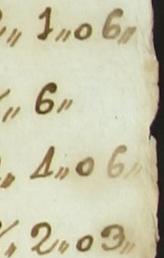 „ 1„ 0 6„
„ 6„
„ 4„ 0 6„
„ 2„ 0 3„